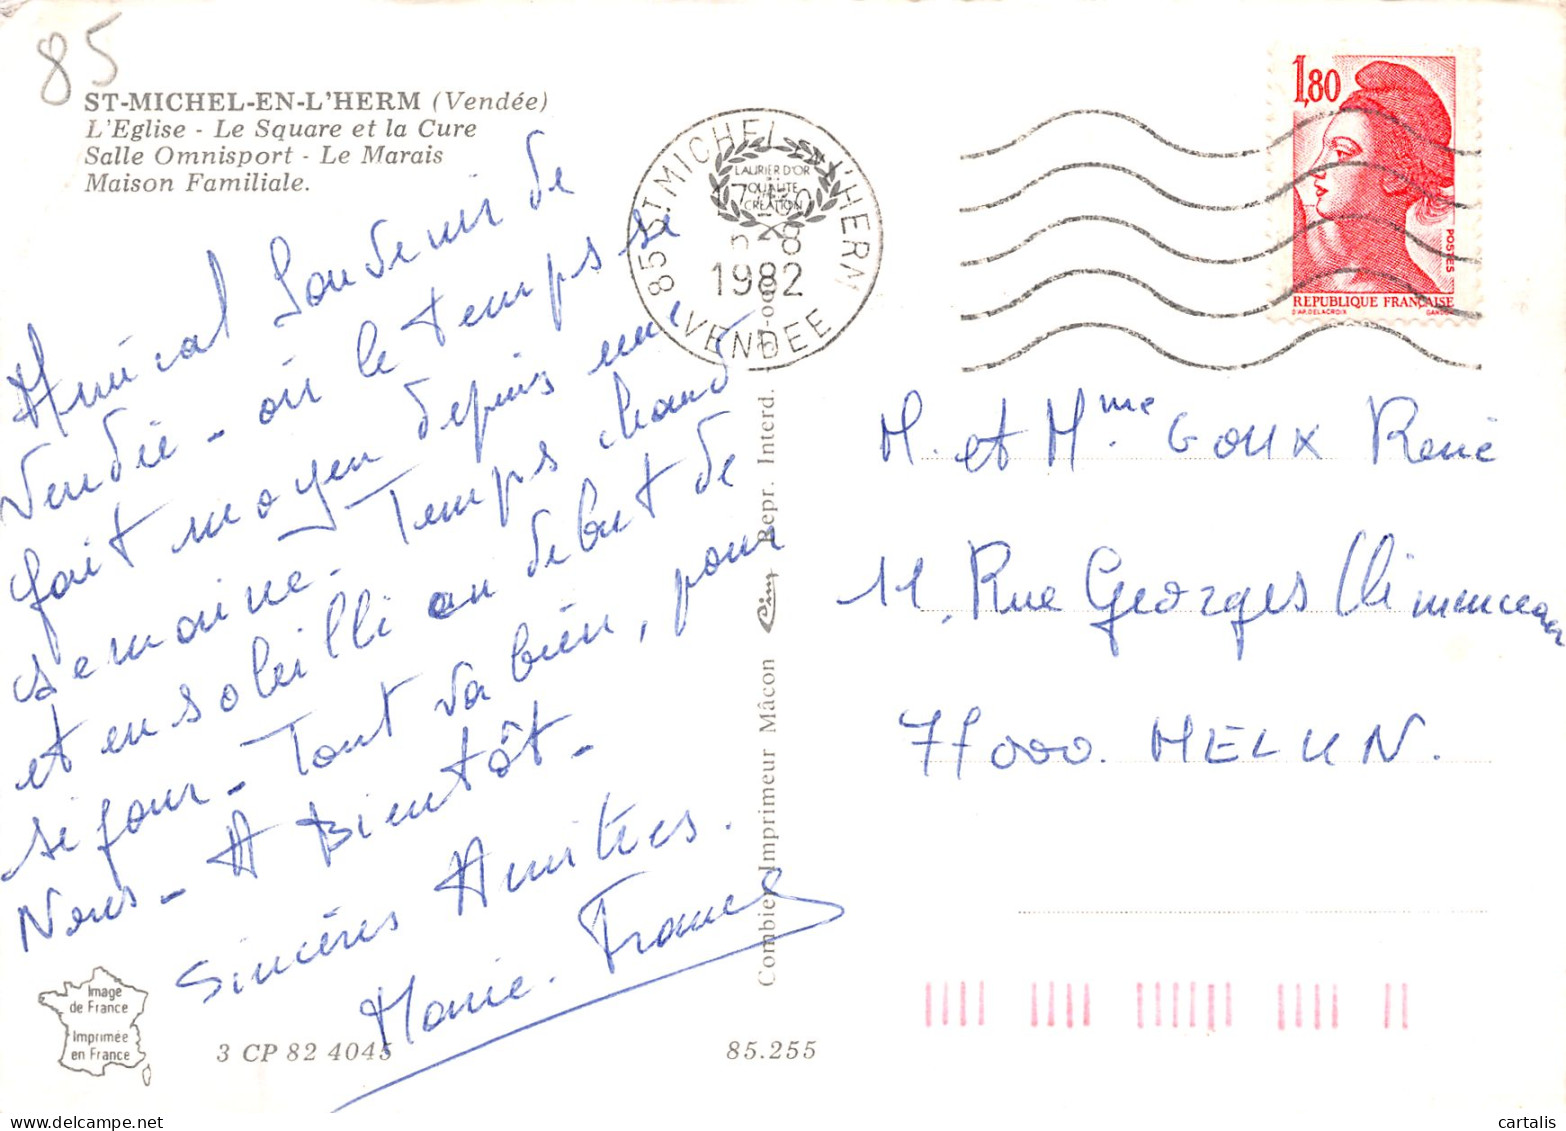 85
ST-MICHEL-EN-L'HERM (Vendée)
L'Eglise - Le Square et la Cure
Salle Omnisport - Le Marais
Maison Familiale.
Amical Souvenir de
Vendée - où le temps se
fait moyen depuis une
semaine - Temps chaud
et ensoleillé au début de
séjour - Tout va bien, pour
Nous - A Bientôt -
Sincères Amitiés.
Marie-France
Image
de France
Imprimée
en France
3 CP 82 4045
85.255
Combier Imprimeur Mâcon Cim Repr. Interd.
85 ST MICHEL L'HERM
LAURIER D'OR
QUALITE
CREATION
8
1982
VENDEE
1,80
POSTES
REPUBLIQUE FRANÇAISE
D'AP. DELACROIX GANDON
M. et Mme GOUX René
11, Rue Georges Clémenceau
77000. MELUN.